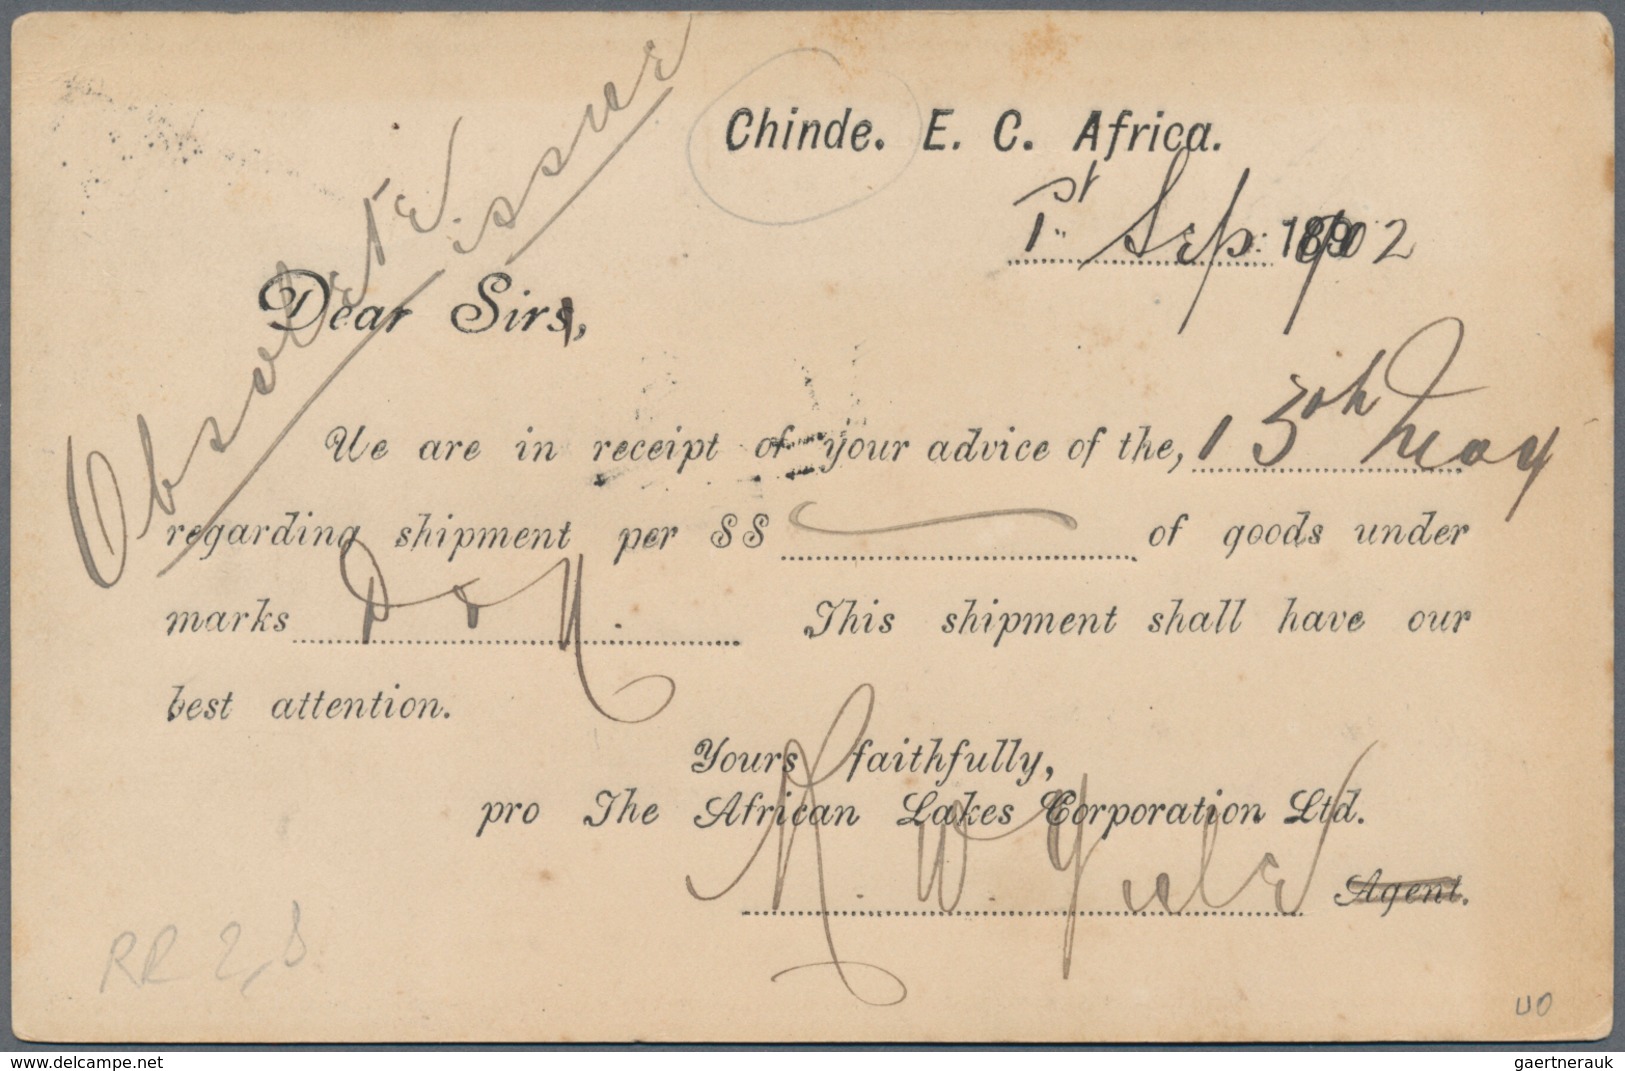 Obsolete issue
Chinde. E. C. Africa.
1st Sep: 1902
Dear Sir,
We are in receipt of your advice of the, 13th May
regarding shipment per SS of goods under
marks This shipment shall have our
best attention.
Yours faithfully,
pro The African Lakes Corporation Ltd.
R. W. Yule Agent.
RR
UO
gaertnerauk
www.delcampe.net